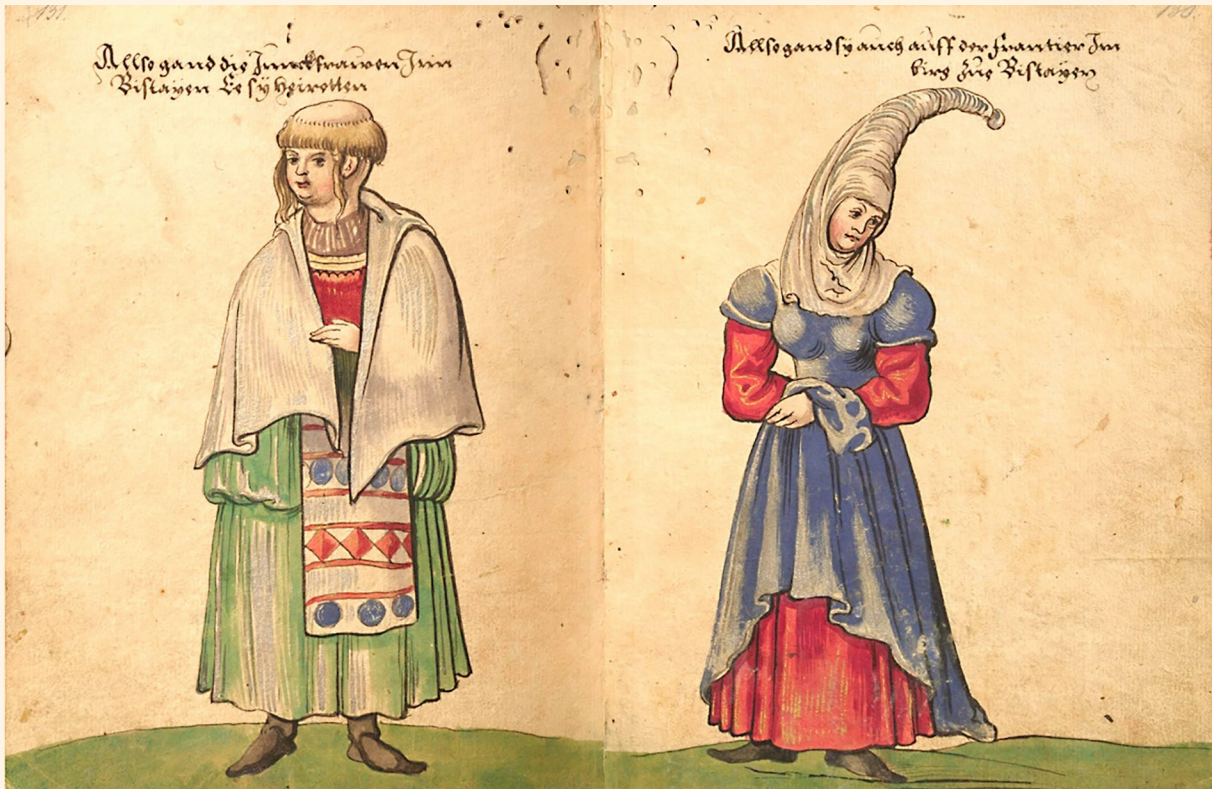 131.
Allso gand die Junckfrauwen Inn
Biskayen Ee sy heiratten
130.
Allso gand sy auch auff der frantier Im
birg zue Biskayen